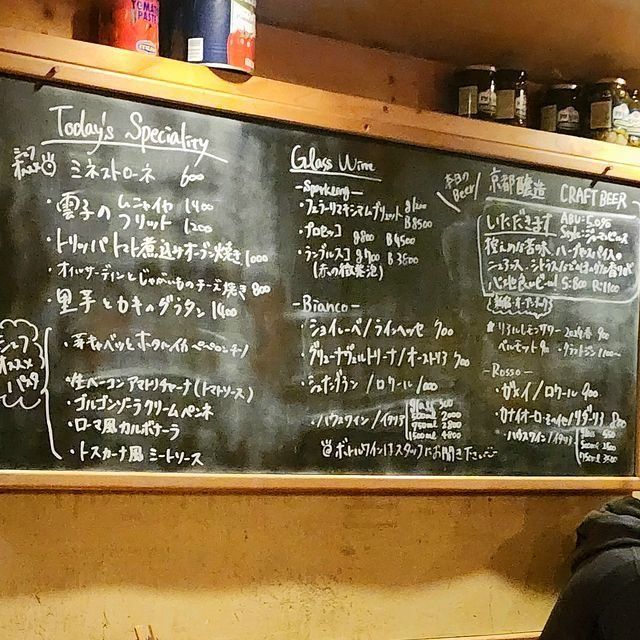 TOMATO PASTE
Today's Speciality
ミネストローネ 600
・雲子の ムニャイヤ 1400
フリット 1200
・トリッパトマト煮込みオーブン焼き 1000
・オイルサーディンとじゃがいものチーズ焼き 800
・里芋とカキのグラタン 1400
シェフ
オススメ
パスタ
・芽キャベツとホタルイカ ペペロンチーノ
・生ベーコン アマトリチャーナ(トマトソース)
・ゴルゴンゾーラクリームペンネ
・ローマ風カルボナーラ
・トスカーナ風 ミートソース
Glass Wine
-Sparkling-
・フェラーリマキシマムブリュット g1200
B8500
・プロセッコ g800 B4500
・ランブルスコ g700 B3800
(赤の微発泡)
-Bianco-
・ショイレーベ/ラインヘッセ 900
・グリューナヴェルトリーナ/オーストリア 900
/ロワール 1000
・ハウスワイン/イタリア
glass 500
500ml 2000
750ml 2800
1500ml 4800
ボトルワインはスタッフにお聞き下さい
本日の
Beer
京都醸造 CRAFT BEER
いただきます
ABV: 5.0%
Style:
控えめな苦味、ハーブやスパイス。
S:800 R:1100
-Rosso-
・ガメイ/ロワール 900
800
・ハウスワイン/イタリア